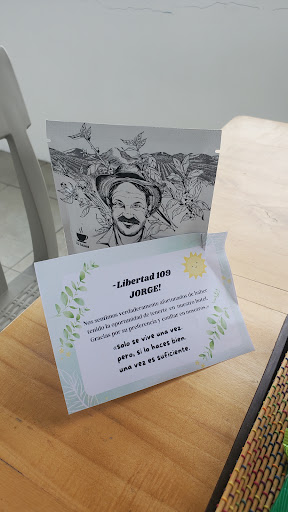 -Libertad 109
JORGE!
Nos sentimos verdaderamente afortunados de haber
tenido la oportunidad de tenerte en nuestro hotel.
Gracias por su preferencia y confiar en nosotros♥
«solo se vive una vez,
pero, si lo haces bien,
una vez es suficiente.